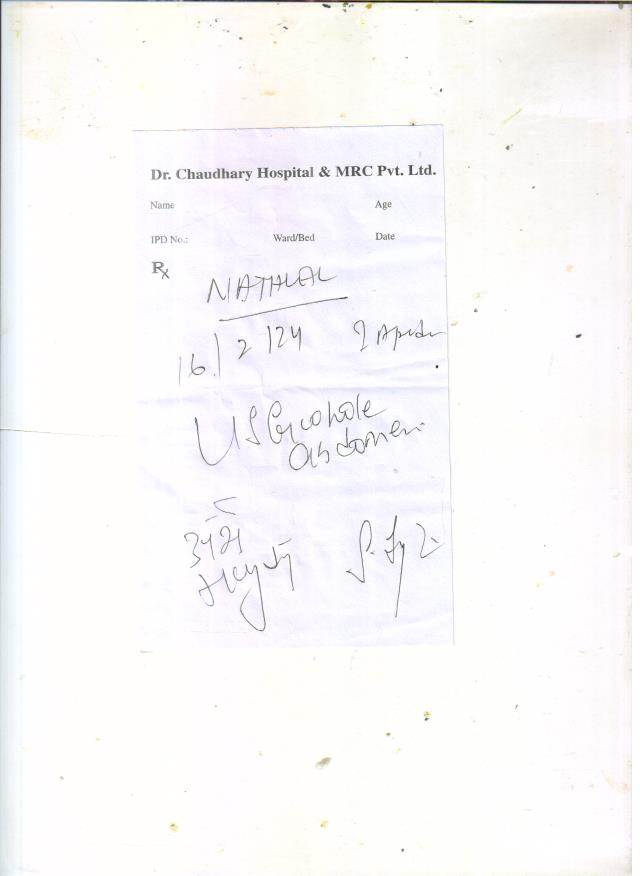 Dr. Chaudhary Hospital & MRC Pvt. Ltd.
Name Age
IPD No.: Ward/Bed Date
Rx
NATHALAL
16/2/24
USG whole
abdomen